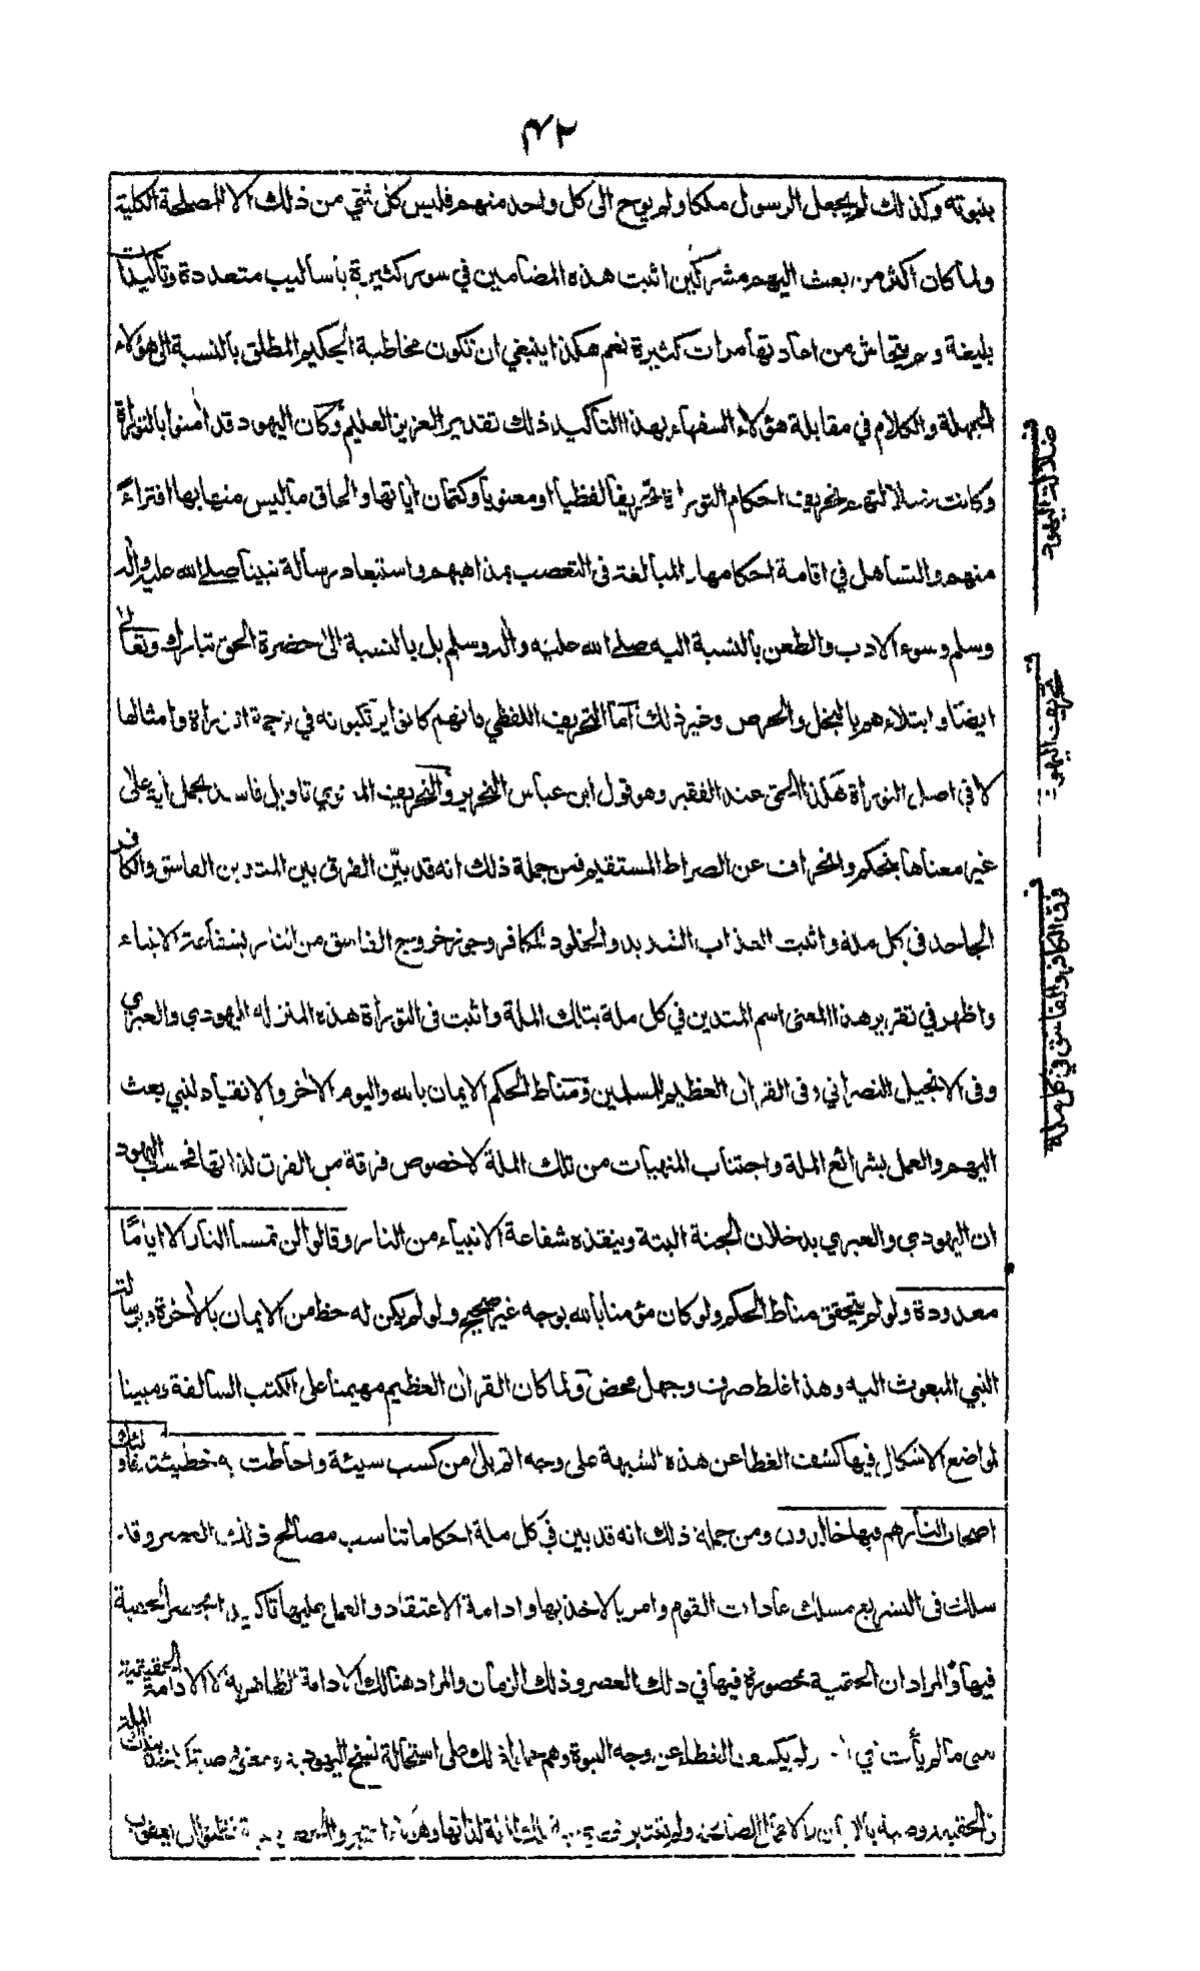 ٤٢
بنبوته وكذلك لم يجعل الرسول ملكا ولم يوح الى كل واحد منهم فليس كل شئ من ذلك الا للمصلحة الكلية
ولما كان اكثر من بعث اليهم مشركين اثبت هذه المضامين في سور كثيرة بأساليب متعددة وتأكيدات
بليغة و يتحاش من اعادتها مرات كثيرة نعم هكذا ينبغي ان تكون مخاطبة الحكيم المطلق بالنسبة الى هؤلاء
الجهلة والكلام في مقابلة هؤلاء السفهاء بهذا التأكيد ذلك تقدير العزيز العليم وكان اليهود قد آمنوا بالتوراة
وكانت ضلالتهم تحريف احكام التوراة تحريفا لفظيا او معنويا وكتمان آياتها والحاق ما ليس منها بها افتراءً
منهم والتساهل في اقامة احكامها والمبالغة في التعصب بمذاهبهم واستبعاد رسالة نبينا صلى الله عليه وآله
وسلم وسوء الادب والطعن بالنسبة اليه صلى الله عليه وآله وسلم بل بالنسبة الى حضرة الحق تبارك وتعالى
ايضا وابتلاءهم بالبخل والحرص وغير ذلك أما التحريف اللفظي فانهم كانوا يرتكبونه في ترجمة التوراة وامثالها
لا في اصل التوراة هكذا الحق عند الفقير وهو قول ابن عباس والتحريف المعنوي تاويل فاسد بحمل آية على
غير معناها بتحكم وانحراف عن الصراط المستقيم فمن جملة ذلك انه قد بيّن الفرق بين المتدين الفاسق والكافر
الجاحد في كل ملة واثبت العذاب الشديد والخلود للكافر وجوز خروج الفاسق من النار بشفاعة الانبياء
واظهر في تقرير هذا المعنى اسم المتدين في كل ملة بتلك الملة واثبت في التوراة هذه المنزلة لليهودي والعبري
وفى الانجيل للنصراني وفى القران العظيم للمسلمين ومناط الحكم الايمان بالله واليوم الآخر والانقياد لنبي بعث
اليهم والعمل بشرائع الملة واجتناب المنهيات من تلك الملة لا خصوص فرقة من الفرق لذاتها فحسب اليهود
ان اليهودي والعبري يدخلان الجنة البتة وينقذه شفاعة الانبياء من النار وقالوا لن تمسنا النار الا اياما
معدودة ولو لم يتحقق مناط الحكم ولو كان مؤمنا بالله بوجه غير صحيح ولو لم يكن له حظ من الايمان بالآخرة وبرسالة
النبي المبعوث اليه وهذا غلط صرف وجهل محض ولما كان القران العظيم مهيمنا على الكتب السالفة ومبينا
لمواضع الاشكال فيها كشف الغطا عن هذه الشبهة على وجه اتم بلى من كسب سيئة واحاطت به خطيئته فاولئك
اصحاب النار هم فيها خالدون ومن جملة ذلك انه قد بين في كل ملة احكاما تناسب مصالح ذلك العصر وقد
سلك في التشريع مسلك عادات القوم وامر بالاخذ بها وادامة الاعتقاد والعمل عليها تأكيدا
فيها والمراد ان الحقية محصورة فيها في ذلك العصر وذلك الزمان والمراد هنالك الادامة الظاهرية لا الادامة الحقيقية
يعنى ما لم يأت نبي ولم يكشف الغطاء عن وجه النبوة وهم حملوا ذلك على استحالة نسخ اليهودية ومعنى
ضلالات اليهود
تحريفات اليهود
فرق الكافر والفاسق في كل ملة